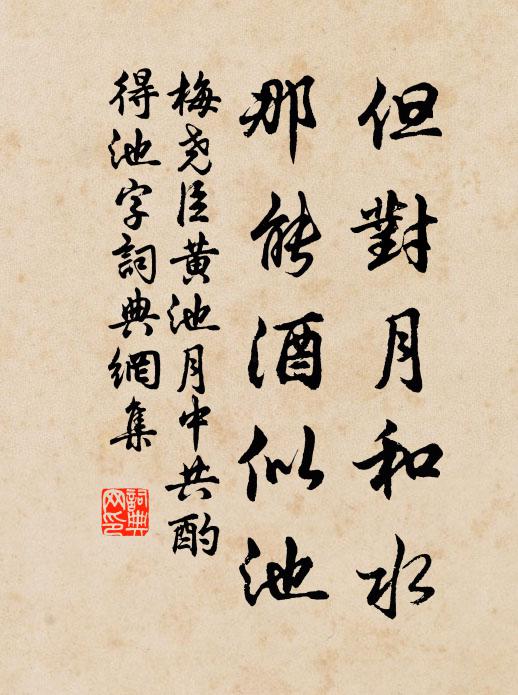 但對月和水
那能酒似池
梅堯臣黄池月中共酌
得池字詞典網集
詞典
网印